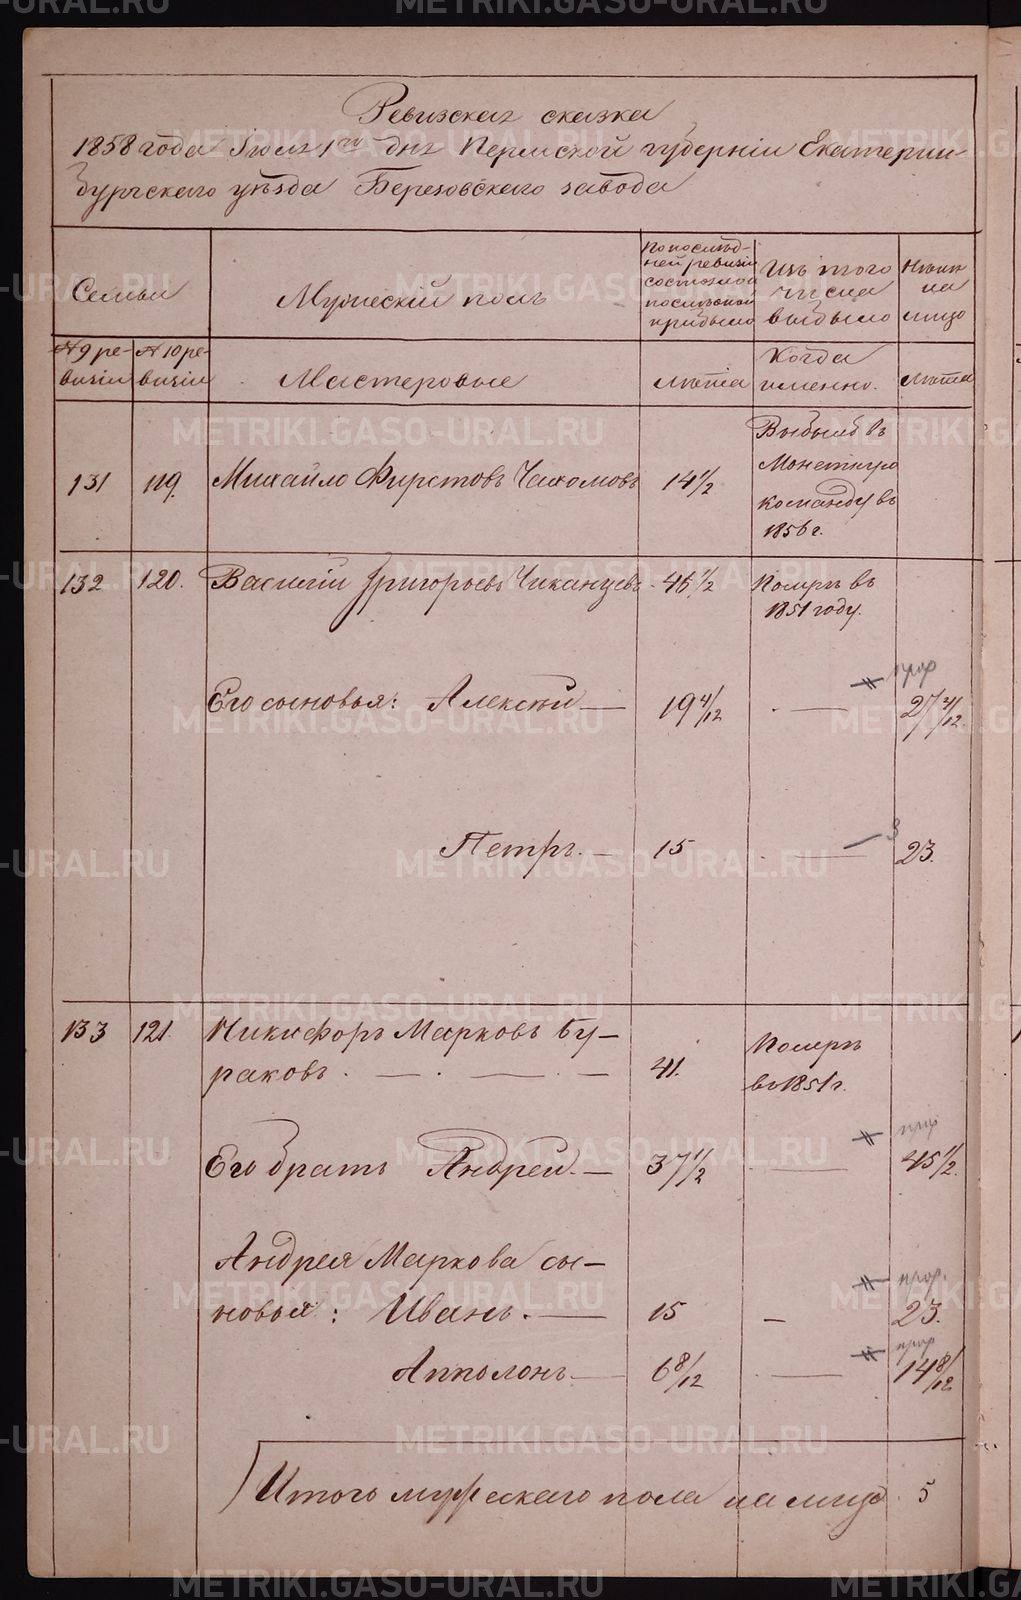 Ревизская сказка
1858 года Іюля 1го дня Пермской губерніи Екатерин-
бургскаго уѣзда Березовскаго завода
Семьи
Мужескій полъ
По послѣд-
ней ревизіи
состояло и
послѣ того
прибыло
Изъ того
числа
выбыло
Нынѣ
на
лицо
№ 9 ре-
визіи
№ 10 ре-
визіи
Мастеровые
лѣта
Когда
именно.
лѣта
131 119. Михайло Фирстовъ Чахомовъ 14 1/2
Выбылъ въ
Монетную
команду въ
1856 г.
132 120. Василій Григорьевъ Чиканцевъ 46 1/2
Померъ въ
1851 году.
Его сыновья: Алексѣй — 19 4/12 — 27 4/12
Петръ. — 15 — 23.
133 121. Никифоръ Марковъ Бу-
раковъ. — 41.
Померъ
въ 1851 г.
Его братъ Андрей. — 37 1/2 — 45 1/2
Андрея Маркова сы-
новья: Иванъ. — 15 — 23.
Апполонъ — 6 8/12 — 14 8/12
Итого мужескаго пола на лицо 5
METRIKI.GASO-URAL.RU